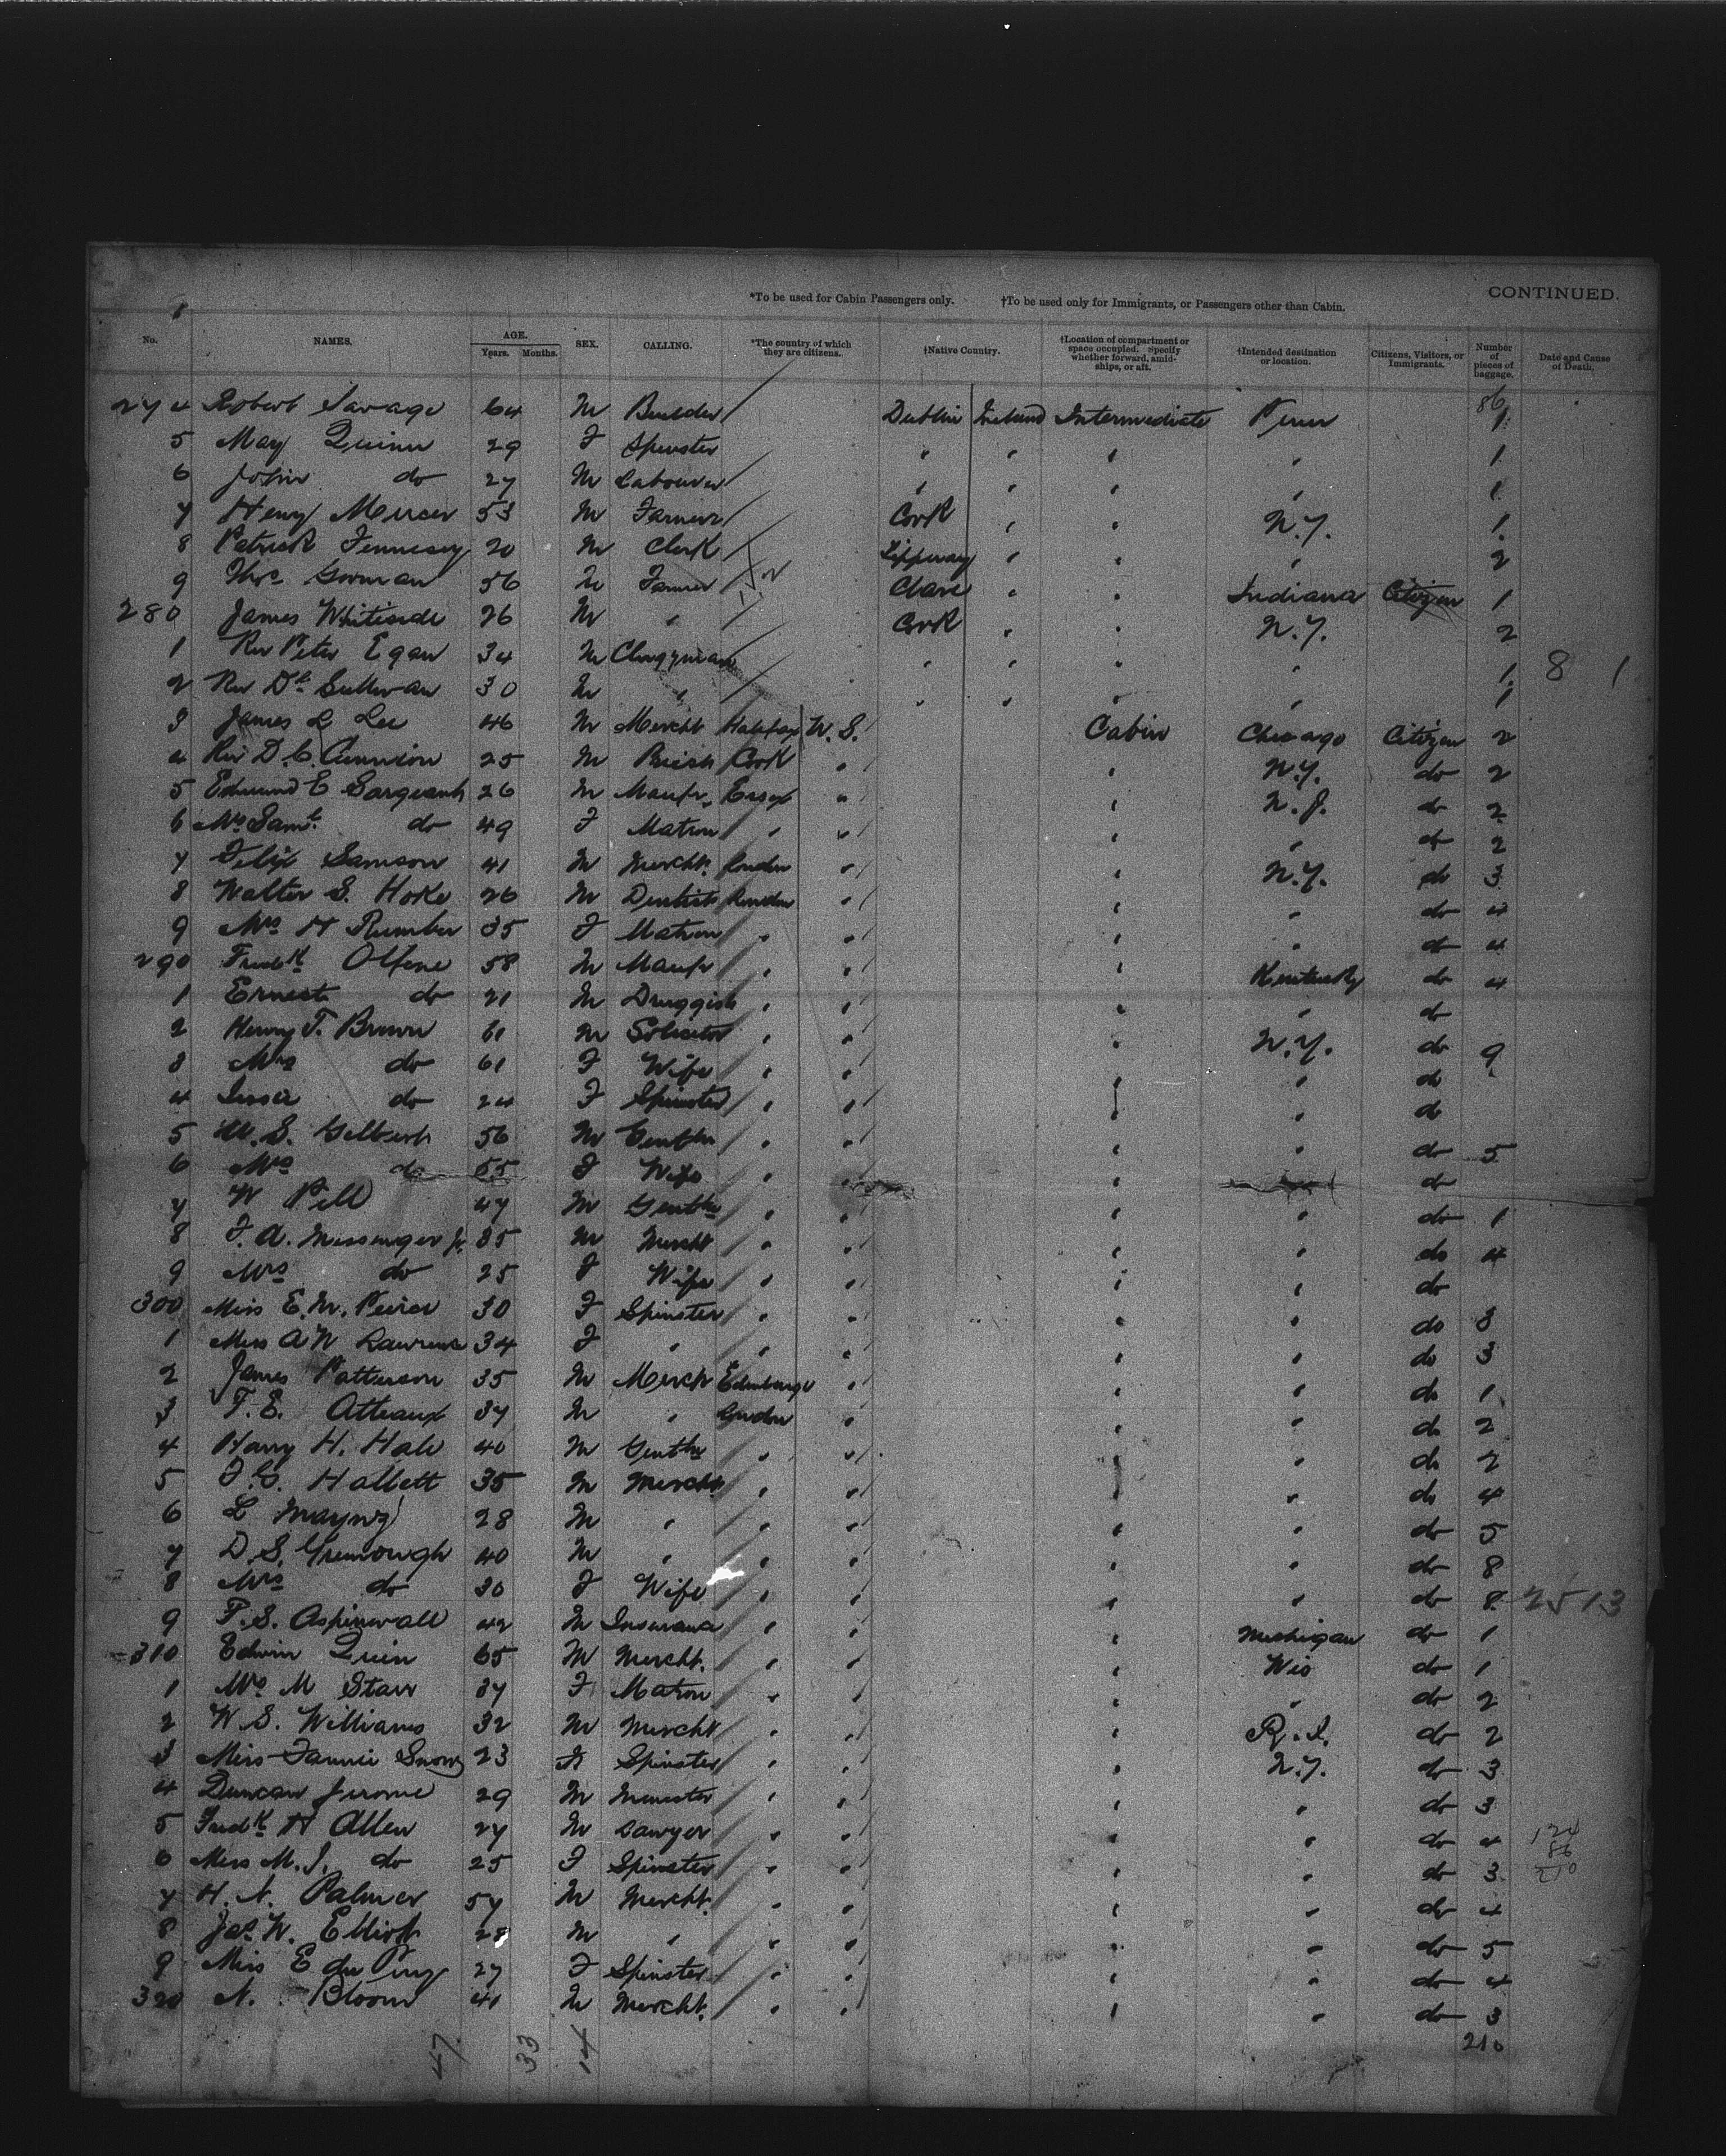 CONTINUED.
*To be used for Cabin Passengers only. †To be used only for Immigrants, or Passengers other than Cabin.
No. NAMES. AGE. Years. Months. SEX. CALLING. *The country of which they are citizens. †Native Country. †Location of compartment or space occupied. Specify whether forward, amidships, or aft. †Intended destination or location. Citizens, Visitors, or Immigrants. Number of pieces of baggage. Date and Cause of Death.
86
274 Robert Savage 64 M Builder Dublin Ireland Intermediate 1
5 May Quinn 29 F Spinster " " " " 1
6 John do 27 M Labourer " " " " 1
7 Henry Mercer 53 M Farmer Cork " " N.Y. 1
8 Patrick Fennesey 20 M Clerk Tipperary " " " 2
9 Thos Gorman 56 M Farmer Clare " " Indiana Citizen 1
280 James Whiteside 26 M " Cork " " N.Y. 2
1 Rev Peter Egan 34 M Clergyman " " " " 1 8 1
2 Rev Dl Sullivan 30 M " " " " " 1
3 James L Lee 46 M Mercht Halifax Cabin Chicago Citizen 2
4 Rev D. C. Cunnion 25 M Cork " " N.Y. do 2
5 Edmund E Sargeant 26 M Manfr. Essex " " N.J. do 2
6 Mrs Saml. do 49 F Matron " " " " do 2
7 Felix Samson 41 M Mercht. London " " N.Y. do 3
8 Walter S. Hoke 26 M Dentist London " " " do 4
9 Mrs H Rumber 35 F Matron " " " " do 4
290 Fredk 58 M Manfr " " " Kentucky do 4
1 Ernest do 21 M Druggist " " " " do
2 Henry T. Brown 61 M Solicitor " " " N.Y. do 9
3 Mrs do 61 F Wife " " " " do
4 do 24 F Spinster " " " " do
5 W. S. Gilbert 56 M Gentln " " " " do 5
6 Mrs do 55 F Wife " " " do
7 W Pell 47 M Gentln " " " " do 1
8 F. A. Messenger Jr. 35 M Mercht " " " " do 4
9 Mrs do 25 F Wife " " " " do
300 Miss E. M. 30 F Spinster " " " " do 3
1 Miss A W Lawrence 34 F " " " " " do 3
2 James Patterson 35 M Merch Edinburgh " " " do 1
3 F. E. Atteaux 37 M " London " " " do 2
4 Harry H. Hale 40 M Gentln " " " " do 2
5 F. C. Hallett 35 M Mercht. " " " " do 4
6 L 28 M " " " " " do 5
7 D. S. Greenough 40 M " " " " " do 8
8 Mrs do 30 F Wife " " " " do 8 25 13
9 F. S. Aspinwall 42 M Insurance " " " Michigan do 1
310 Edwin Quin 65 M Mercht. " " " Wis do 1
1 Mrs M Starr 37 F Matron " " " " do 2
2 W. S. Williams 32 M Mercht " " " R.I. do 2
3 Miss Fannie Snow 23 F Spinster " " " N.Y. do 3
4 Duncan Jerome 29 M " " " " do 3
5 Fredk H Allen 27 M " " " " do 4 124
6 Miss M. J. do 25 F Spinster " " " " do 3 86
210
7 H. N. Palmer 57 M Mercht. " " " " do 4
8 Jas. W. Elliott 28 M " " " " " do 5
9 Miss E du 27 F Spinster " " " " do 4
320 N. Bloom 41 M Mercht. " " " " do 3
47 33 14 210